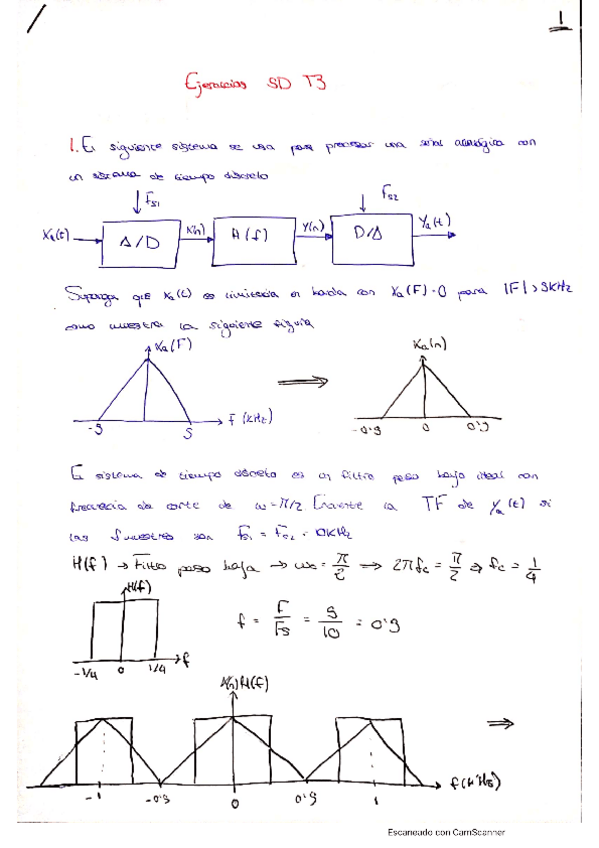 1
Ejercicios SD T3
1. El siguiente sistema se usa para procesar una señal analógica con
un sistema de tiempo discreto
Fs1
Fs2
Xa(t)
A/D
X(n)
H(f)
Y(n)
D/A
Ya(t)
Suponga que Xa(t) es limitada en banda con Xa(F)=0 para |F|>5kHz
como muestra la siguiente figura
Xa(F)
-5
5
F (kHz)
⟹
Xa(n)
-0'5
0
0'5
El sistema de tiempo discreto es un filtro paso bajo ideal con
frecuencia de corte de ω=π/2. Encuentre la TF de Ya(t) si
las fmuestreo son Fs1 = Fs2 = 10kHz
H(f) → Filtro paso baja → ωc = π/2 ⟹ 2πfc = π/2 ⇒ fc = 1/4
H(f)
-1/4
0
1/4
f
f = F/Fs = 5/10 = 0'5
X(n)H(f)
⟹
-1
-0'5
0
0'5
1
Escaneado con CamScanner